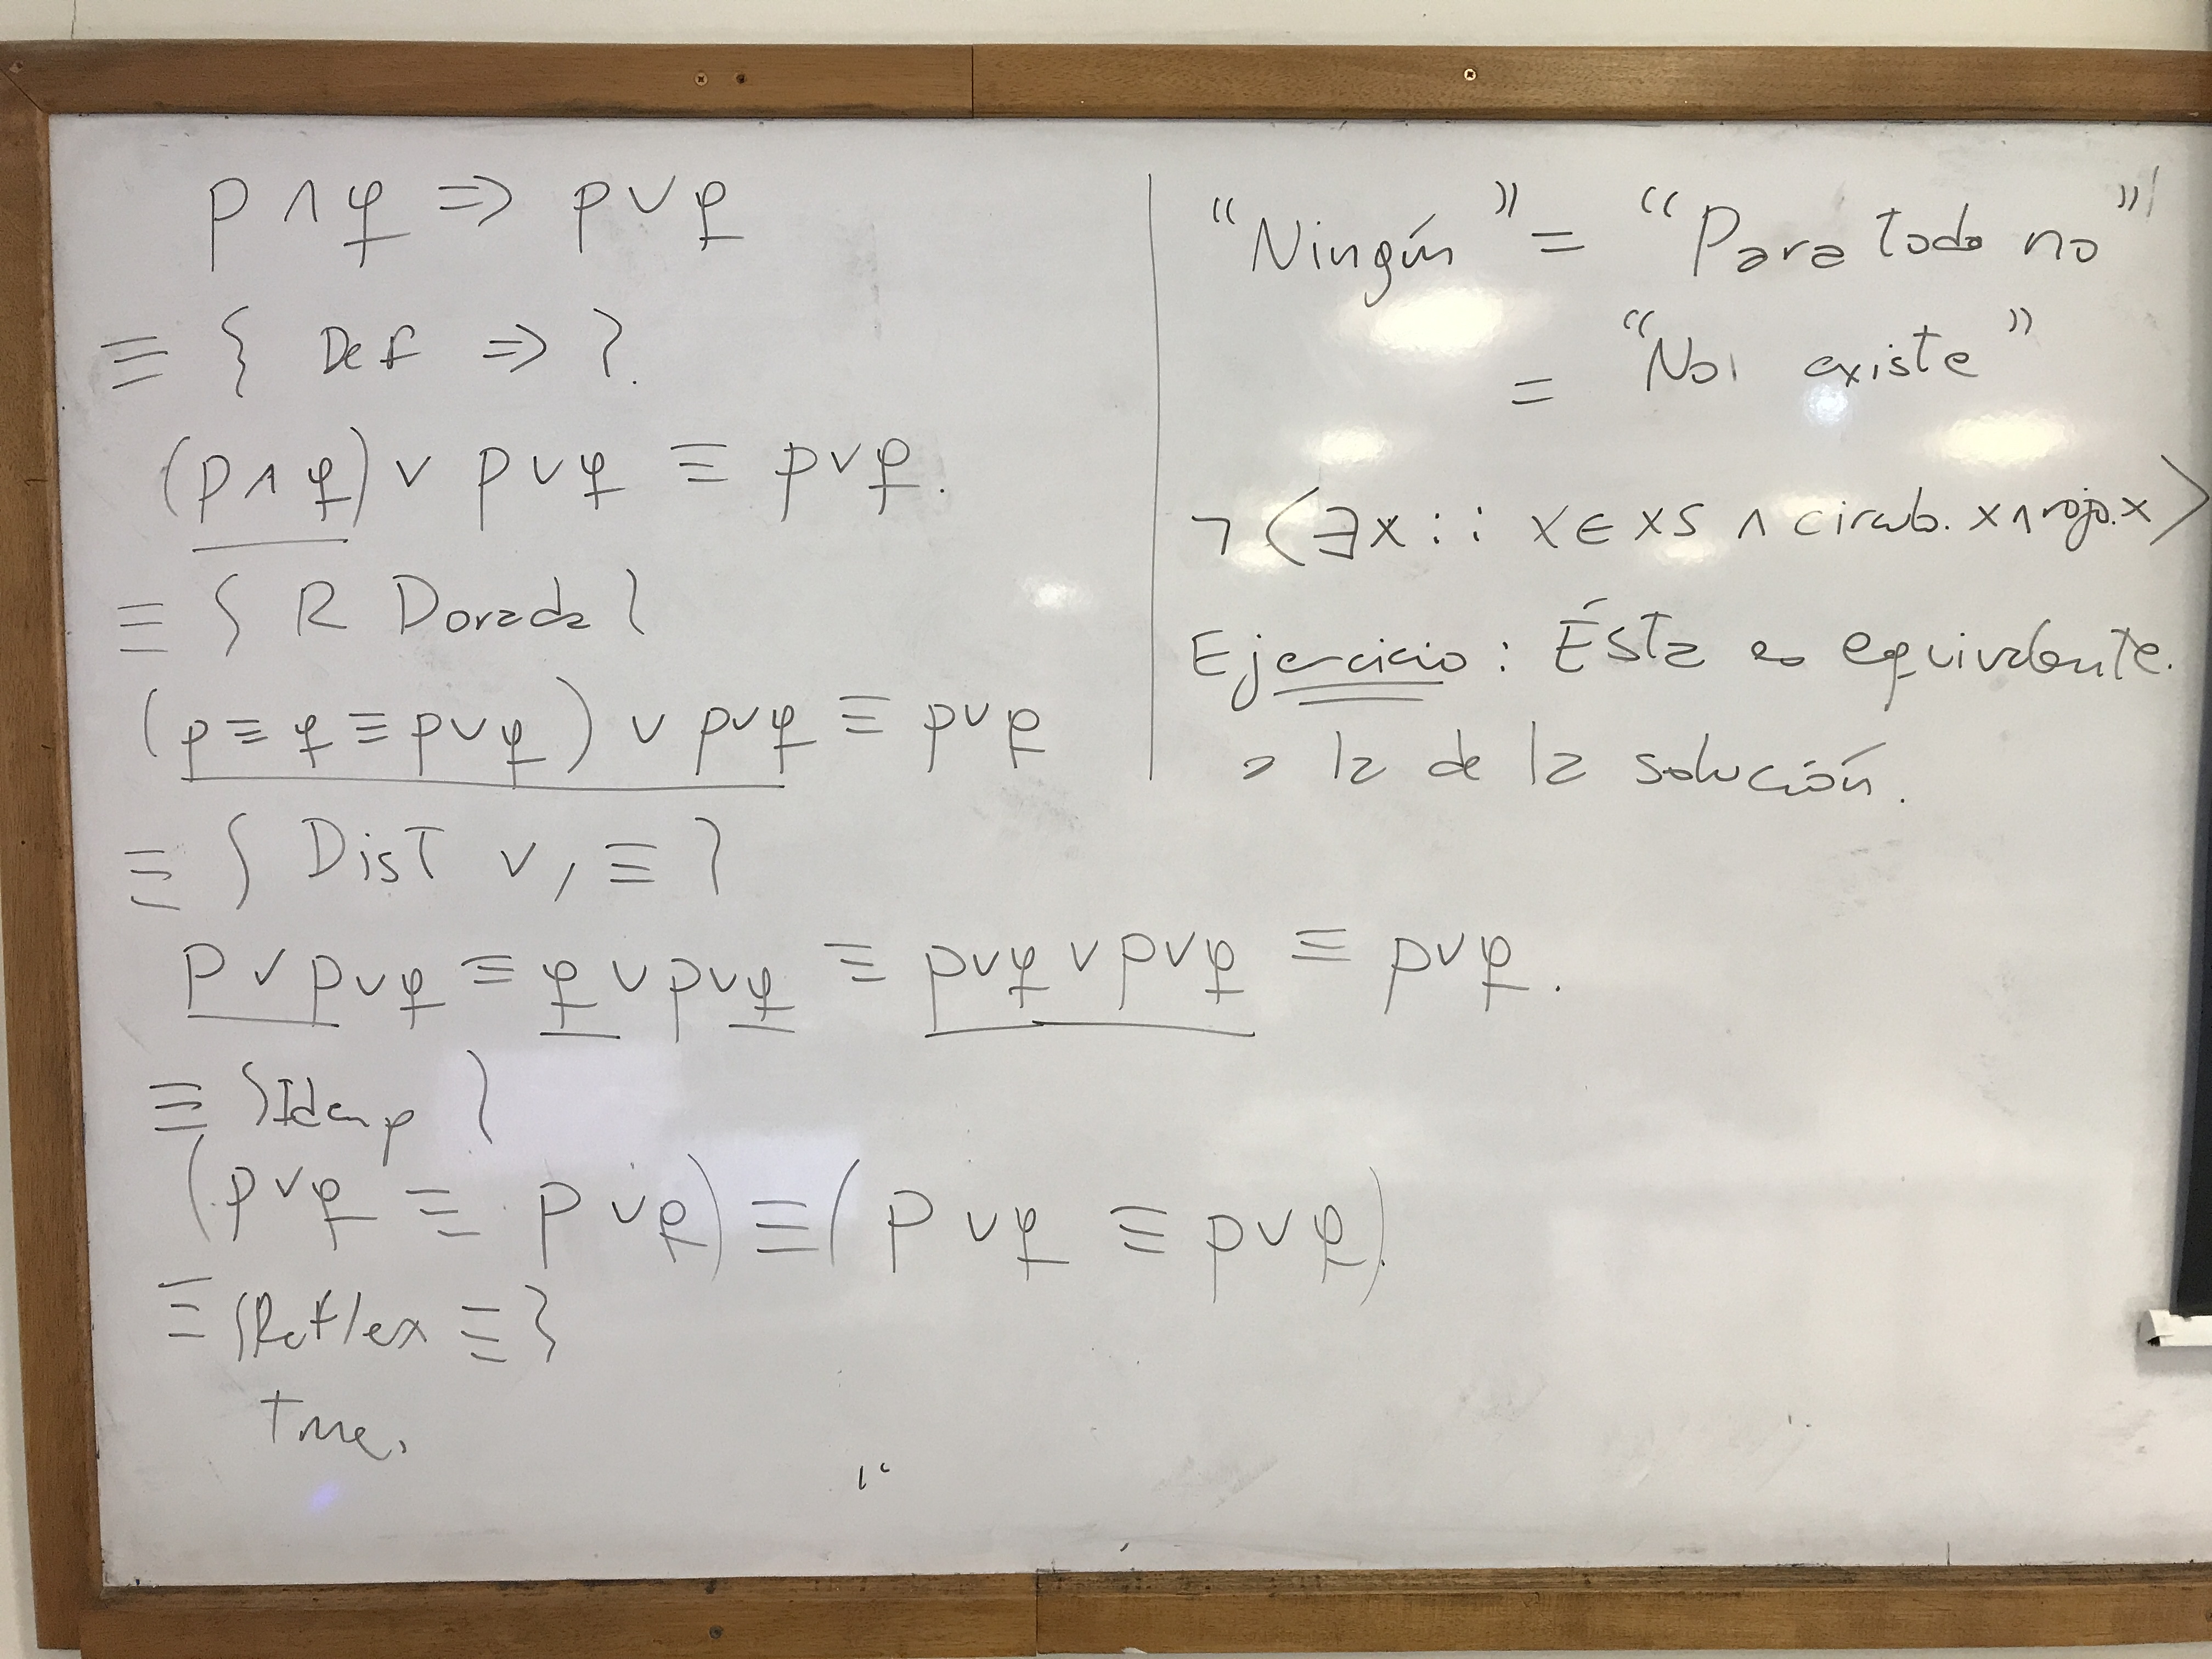 p ∧ q ⇒ p ∨ q
≡ { Def ⇒ }.
(p ∧ q) ∨ p ∨ q ≡ p ∨ q.
≡ { R Dorada }
(p ≡ q ≡ p ∨ q) ∨ p ∨ q ≡ p ∨ q
≡ { Dist ∨, ≡ }
p ∨ p ∨ q ≡ q ∨ p ∨ q ≡ p ∨ q ∨ p ∨ q ≡ p ∨ q.
≡ { Idemp }
(p ∨ q ≡ p ∨ q) ≡ (p ∨ q ≡ p ∨ q).
≡ { Reflex ≡ }
True.
"Ningún" = "Para todo no"
= "No existe"
¬ ⟨∃x : : x ∈ xs ∧ circulo.x ∧ rojo.x⟩
Ejercicio : Ésta es equivalente.
a la de la solución.